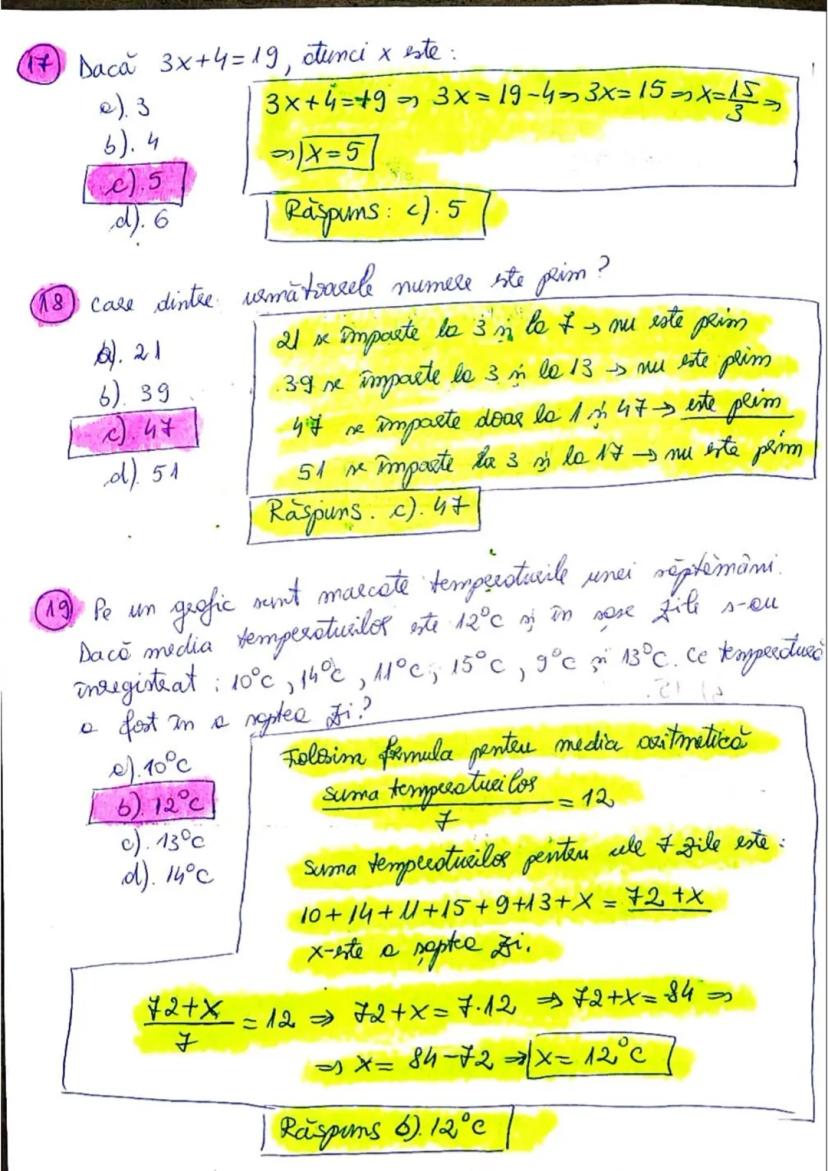 17 Dacă 3x+4=19, atunci x este:
a). 3
b). 4
c). 5
d). 6
3x+4=19 ⇒ 3x=19-4 ⇒ 3x=15 ⇒ x=15/3 ⇒
⇒ x=5
Răspuns: c). 5
18 Care dintre următoarele numere este prim?
a). 21
b). 39
c). 47
d). 51
21 se împarte la 3 și la 7 → nu este prim
39 se împarte la 3 și la 13 → nu este prim
47 se împarte doar la 1 și 47 → este prim
51 se împarte la 3 și la 17 → nu este prim
Răspuns. c). 47
19 Pe un grafic sunt marcate temperaturile unei săptămâni.
Dacă media temperaturilor este 12°C și în șase zile s-au
înregistrat: 10°C, 14°C, 11°C, 15°C, 9°C și 13°C. Ce temperatură
a fost în a șaptea zi?
a). 10°C
b). 12°C
c). 13°C
d). 14°C
Folosim formula pentru media aritmetică
suma temperaturilor / 7 = 12
Suma temperaturilor pentru cele 7 zile este:
10+14+11+15+9+13+x = 72+x
x-este a șaptea zi.
72+x / 7 = 12 ⇒ 72+x = 7·12 ⇒ 72+x = 84 ⇒
⇒ x = 84-72 ⇒ x = 12°C
Răspuns b). 12°C